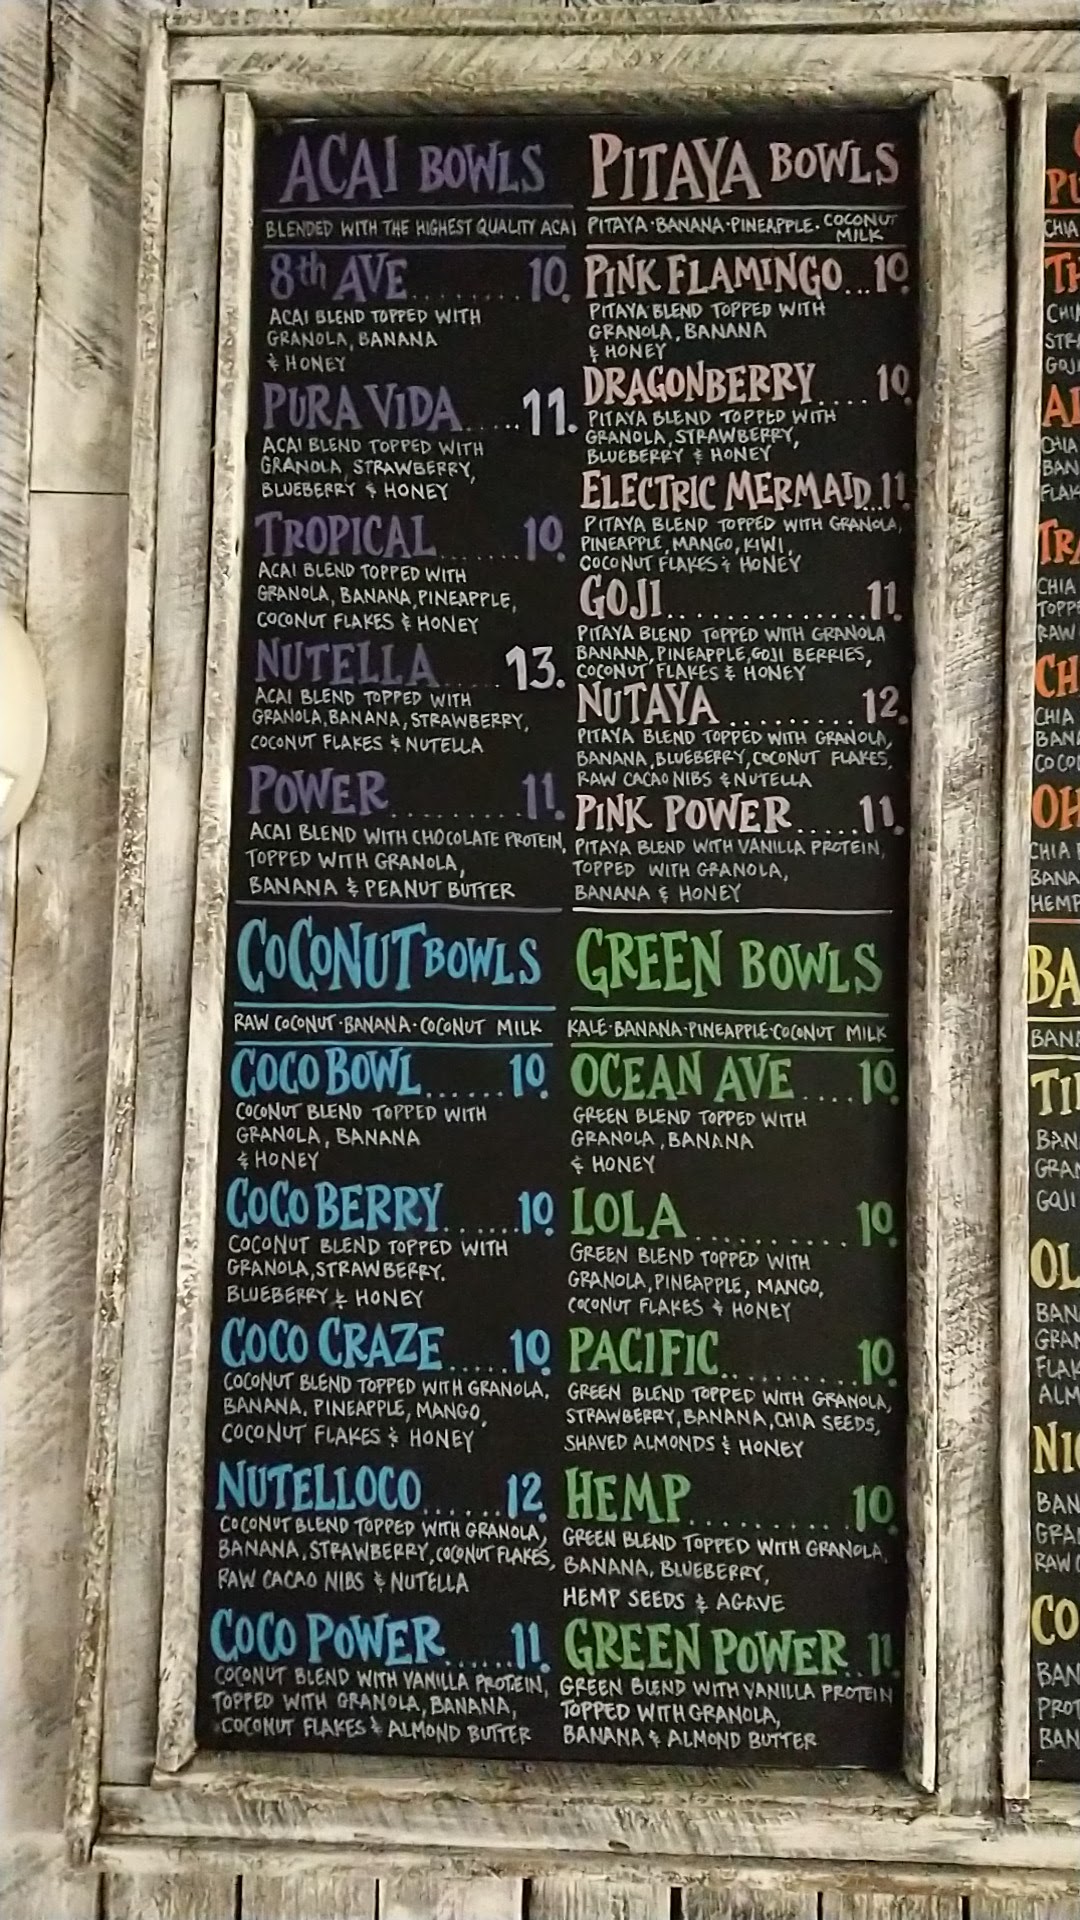 ACAI BOWLS
BLENDED WITH THE HIGHEST QUALITY ACAI
8th AVE........10.
ACAI BLEND TOPPED WITH
GRANOLA, BANANA
& HONEY
PURA VIDA.....11.
ACAI BLEND TOPPED WITH
GRANOLA, STRAWBERRY,
BLUEBERRY & HONEY
TROPICAL......10.
ACAI BLEND TOPPED WITH
GRANOLA, BANANA, PINEAPPLE,
COCONUT FLAKES & HONEY
NUTELLA.....13.
ACAI BLEND TOPPED WITH
GRANOLA, BANANA, STRAWBERRY,
COCONUT FLAKES & NUTELLA
POWER.........11.
ACAI BLEND WITH CHOCOLATE PROTEIN,
TOPPED WITH GRANOLA,
BANANA & PEANUT BUTTER
PITAYA BOWLS
PITAYA·BANANA·PINEAPPLE·COCONUT
MILK
PINK FLAMINGO...10.
PITAYA BLEND TOPPED WITH
GRANOLA, BANANA
& HONEY
DRAGONBERRY....10.
PITAYA BLEND TOPPED WITH
GRANOLA, STRAWBERRY,
BLUEBERRY & HONEY
ELECTRIC MERMAID..11.
PITAYA BLEND TOPPED WITH GRANOLA,
PINEAPPLE, MANGO, KIWI,
COCONUT FLAKES & HONEY
GOJI.............11.
PITAYA BLEND TOPPED WITH GRANOLA
BANANA, PINEAPPLE, GOJI BERRIES,
COCONUT FLAKES & HONEY
NUTAYA.........12.
PITAYA BLEND TOPPED WITH GRANOLA,
BANANA, BLUEBERRY, COCONUT FLAKES,
RAW CACAO NIBS & NUTELLA
PINK POWER.....11.
PITAYA BLEND WITH VANILLA PROTEIN,
TOPPED WITH GRANOLA,
BANANA & HONEY
COCONUT BOWLS
RAW COCONUT·BANANA·COCONUT MILK
COCO BOWL......10.
COCONUT BLEND TOPPED WITH
GRANOLA, BANANA
& HONEY
COCO BERRY......10.
COCONUT BLEND TOPPED WITH
GRANOLA, STRAWBERRY.
BLUEBERRY & HONEY
COCO CRAZE.....10.
COCONUT BLEND TOPPED WITH GRANOLA,
BANANA, PINEAPPLE, MANGO,
COCONUT FLAKES & HONEY
NUTELLOCO......12.
COCONUT BLEND TOPPED WITH GRANOLA,
BANANA, STRAWBERRY, COCONUT FLAKES,
RAW CACAO NIBS & NUTELLA
COCO POWER......11.
COCONUT BLEND WITH VANILLA PROTEIN,
TOPPED WITH GRANOLA, BANANA,
COCONUT FLAKES & ALMOND BUTTER
GREEN BOWLS
KALE·BANANA·PINEAPPLE·COCONUT MILK
OCEAN AVE....10.
GREEN BLEND TOPPED WITH
GRANOLA, BANANA
& HONEY
LOLA..........10.
GREEN BLEND TOPPED WITH
GRANOLA, PINEAPPLE, MANGO,
COCONUT FLAKES & HONEY
PACIFIC.........10.
GREEN BLEND TOPPED WITH GRANOLA,
STRAWBERRY, BANANA, CHIA SEEDS,
SHAVED ALMONDS & HONEY
HEMP..........10.
GREEN BLEND TOPPED WITH GRANOLA,
BANANA, BLUEBERRY,
HEMP SEEDS & AGAVE
GREEN POWER..11.
GREEN BLEND WITH VANILLA PROTEIN
TOPPED WITH GRANOLA,
BANANA & ALMOND BUTTER